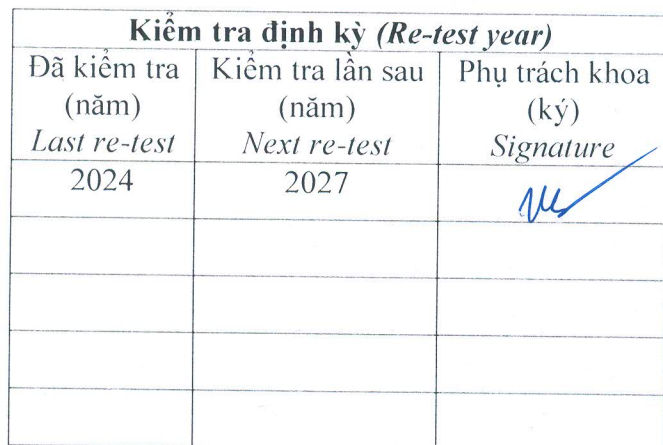 Kiểm tra định kỳ (Re-test year)
Đã kiểm tra
(năm)
Last re-test
Kiểm tra lần sau
(năm)
Next re-test
Phụ trách khoa
(ký)
Signature
2024
2027